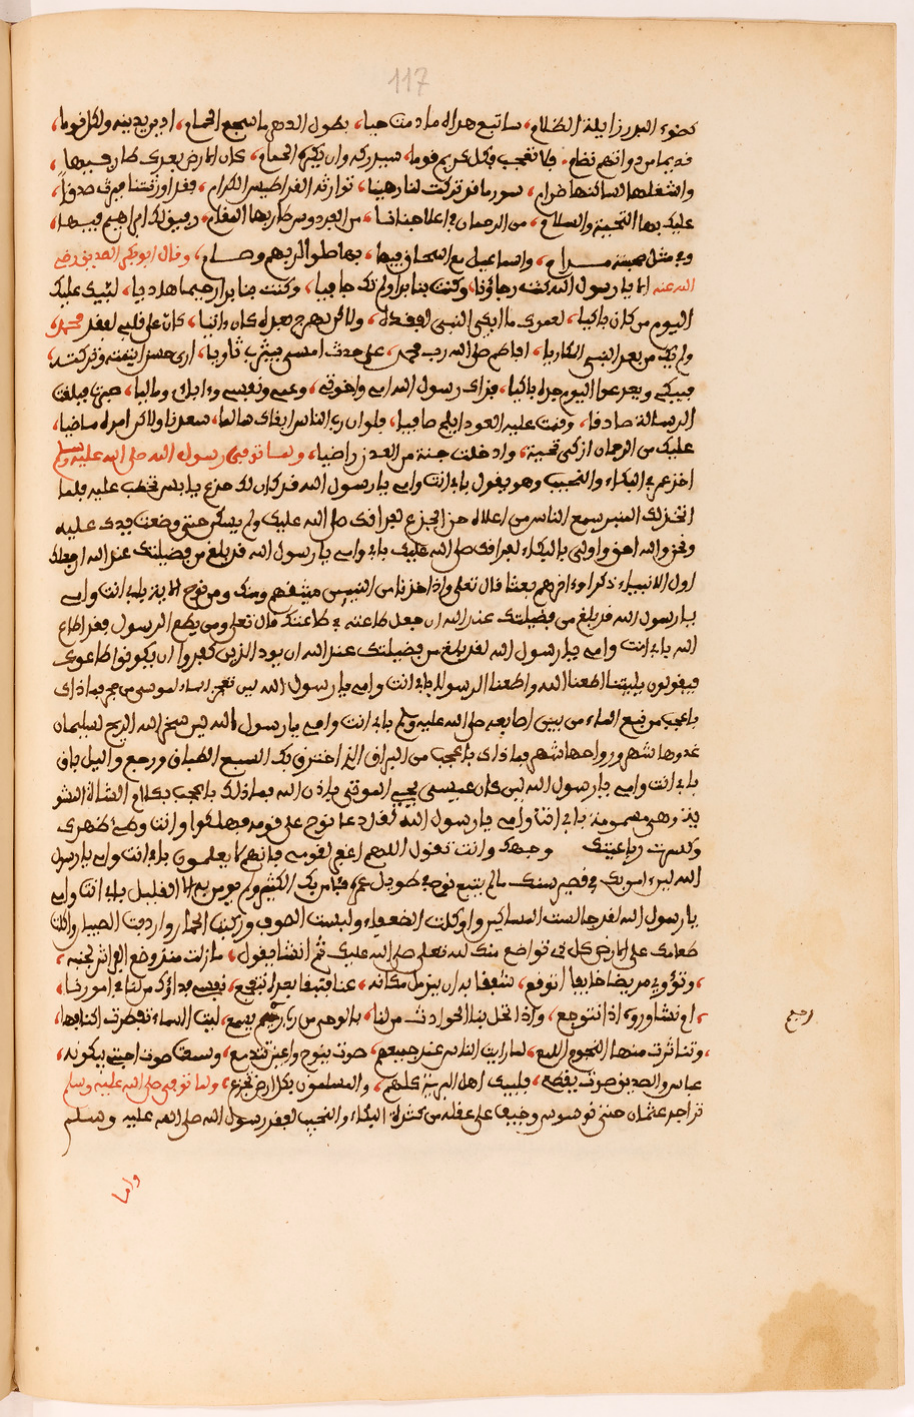 117
كضوء البدر زايلة الظلام، ساتبع هداه ما دمت حيا، بطول الدهر ما سجع الحمام، ادير بدينه ولكل قوما،
كان الارض بعدك طار فيها،
واشعلها لساكنها ضرام، توارثه القراطيس الكرام، فقد اورثتنا ميراث صدقا،
عليك بها التحية والسلام، من الرحمان في اعلا جنانا، من الفردوس طاب بها المقام، رفيق لك ابراهيم فيها،
واسماعيل مع اسحاق فيها، بما صلوا لربهم وصام، وقال ابو بكر الصديق رضي
الله عنه الا يا رسول الله كنت رجاؤنا، وكنت بنا برا ولم تك جافيا، وكنت بنا برا رحيما هاديا، لتبك عليك
اليوم من كان باكيا، لعمرك ما ابكي النبي لفقده، ولاكن لهرج بعده كان واتيا، كان على قلبي لفقد محمد،
افاطم صلى الله رب محمد، على جدث امسى بيثرب ثاويا، ارى حسن ايتمته وتركته،
فيبكي ويدعوا اليوم جده باكيا، فداك رسول الله امي واخوتي، وعمي ونفسي وءابائي وماليا، صبرت فبلغت
الرسالة صادقا، وقمت عليه العود ابلج صافيا، فلو ان رب الناس ابقاك هالما، سعدنا ولاكن امره ماضيا،
عليك من الرحمان ازكى تحية، وادخلت جنة من العدن راضيا، ولما توفي رسول الله صلى الله عليه وسلم
اخذ عمر في البكاء والنحيب وهو يقول بابي انت وامي يا رسول الله قد كان لك جذع يابس تخطب عليه فلما
اتخذ لك المنبر يسمع الناس من اعلاه حن الجذع لفراقك صلى الله عليك ولم يسكن حتى وضعت يدك عليه
ونحن والله احق واولى بالبكاء لفراقك صلى الله عليك بابي وامي يا رسول الله قد بلغ من فضيلتك عند الله ان جعلك
اول الانبياء ذكرا وءاخرهم بعثا قال تعلى واذ اخذنا من النبيين ميثقهم ومنك ومن نوح الاية بابي انت وامي
يا رسول الله قد بلغ من فضيلتك عند الله ان جعل طاعته في طاعتك قال تعلى ومن يطع الرسول فقد اطاع
الله بابي انت وامي يا رسول الله لقد بلغ من فضيلتك عند الله ان يود الذين كفروا ان يكونوا طاعوك
فيقولون يليتنا اطعنا الله واطعنا الرسولا بابي انت وامي يا رسول الله لين تفجر الماء لموسى من حجر فماذاك
باعجب من نبع الماء من بين اصابعه صلى الله عليه وسلم بابي انت وامي يا رسول الله لين سخر الله الريح لسليمان
غدوها شهر ورواحها شهر فماذاك باعجب من البراق الذي اخترق بك السبع الطباق ورجع واليل باق
بابي انت وامي يا رسول الله لين كان عيسى يحيي الموتى باذن الله فماذلك باعجب بكلام الشاة المشو
ية وهي مسمومة بابي انت وامي يا رسول الله لقد دعا نوح على قومه فهلكوا وانت وطئ ظهرك
وكسرت رباعيتك وجهك وانت تقول اللهم اغفر لقومي فانهم لا يعلمون بابي انت وامي يا رسول
الله لين امن بك في قصير سنك ما لم يتبع نوحا في طويل عمره فامن بك الكثير ولم يومن به الا القليل بابي انت وامي
يا رسول الله لقد جالست المساكين واوكلت الضعفاء ولبست الصوف وركبت الحمار واردفت الصبيان واكلت
طعامك على الارض كل ذي تواضع منك لله تعلى صلى الله عليك ثم انشا يقول، مازلت منذ وضع الفراش لجنبه،
وثوى مريضا خايفا اتوقع، شفقا بدان يزل مكانه، عنا فتبقا بعده نتفجع، نفسي فداؤك من لنا في امورنا،
ام نشاوره اذا نتوجع، واذا تحل بنا الحوادث من لنا، بالوحي من رب رحيم يسمع، ليت السماء تفطرت اكنافها،
رحيم
وتناثرت منها النجوم اللمع، لما رايت الناس عند جميعهم، صوت ينوح واعين تدمع، وسمعت صوت اجتي يبكونه،
عباس والصديق صوت يقطع، فليبك اهل المدينة كلهم، والمسلمون بكل ارض تجزع، ولما توفي صلى الله عليه وسلم
تزاجر عثمان حتى توسوس وخيف على عقله من كثرة البكاء والنحيب لفقد رسول الله صلى الله عليه وسلم
واما